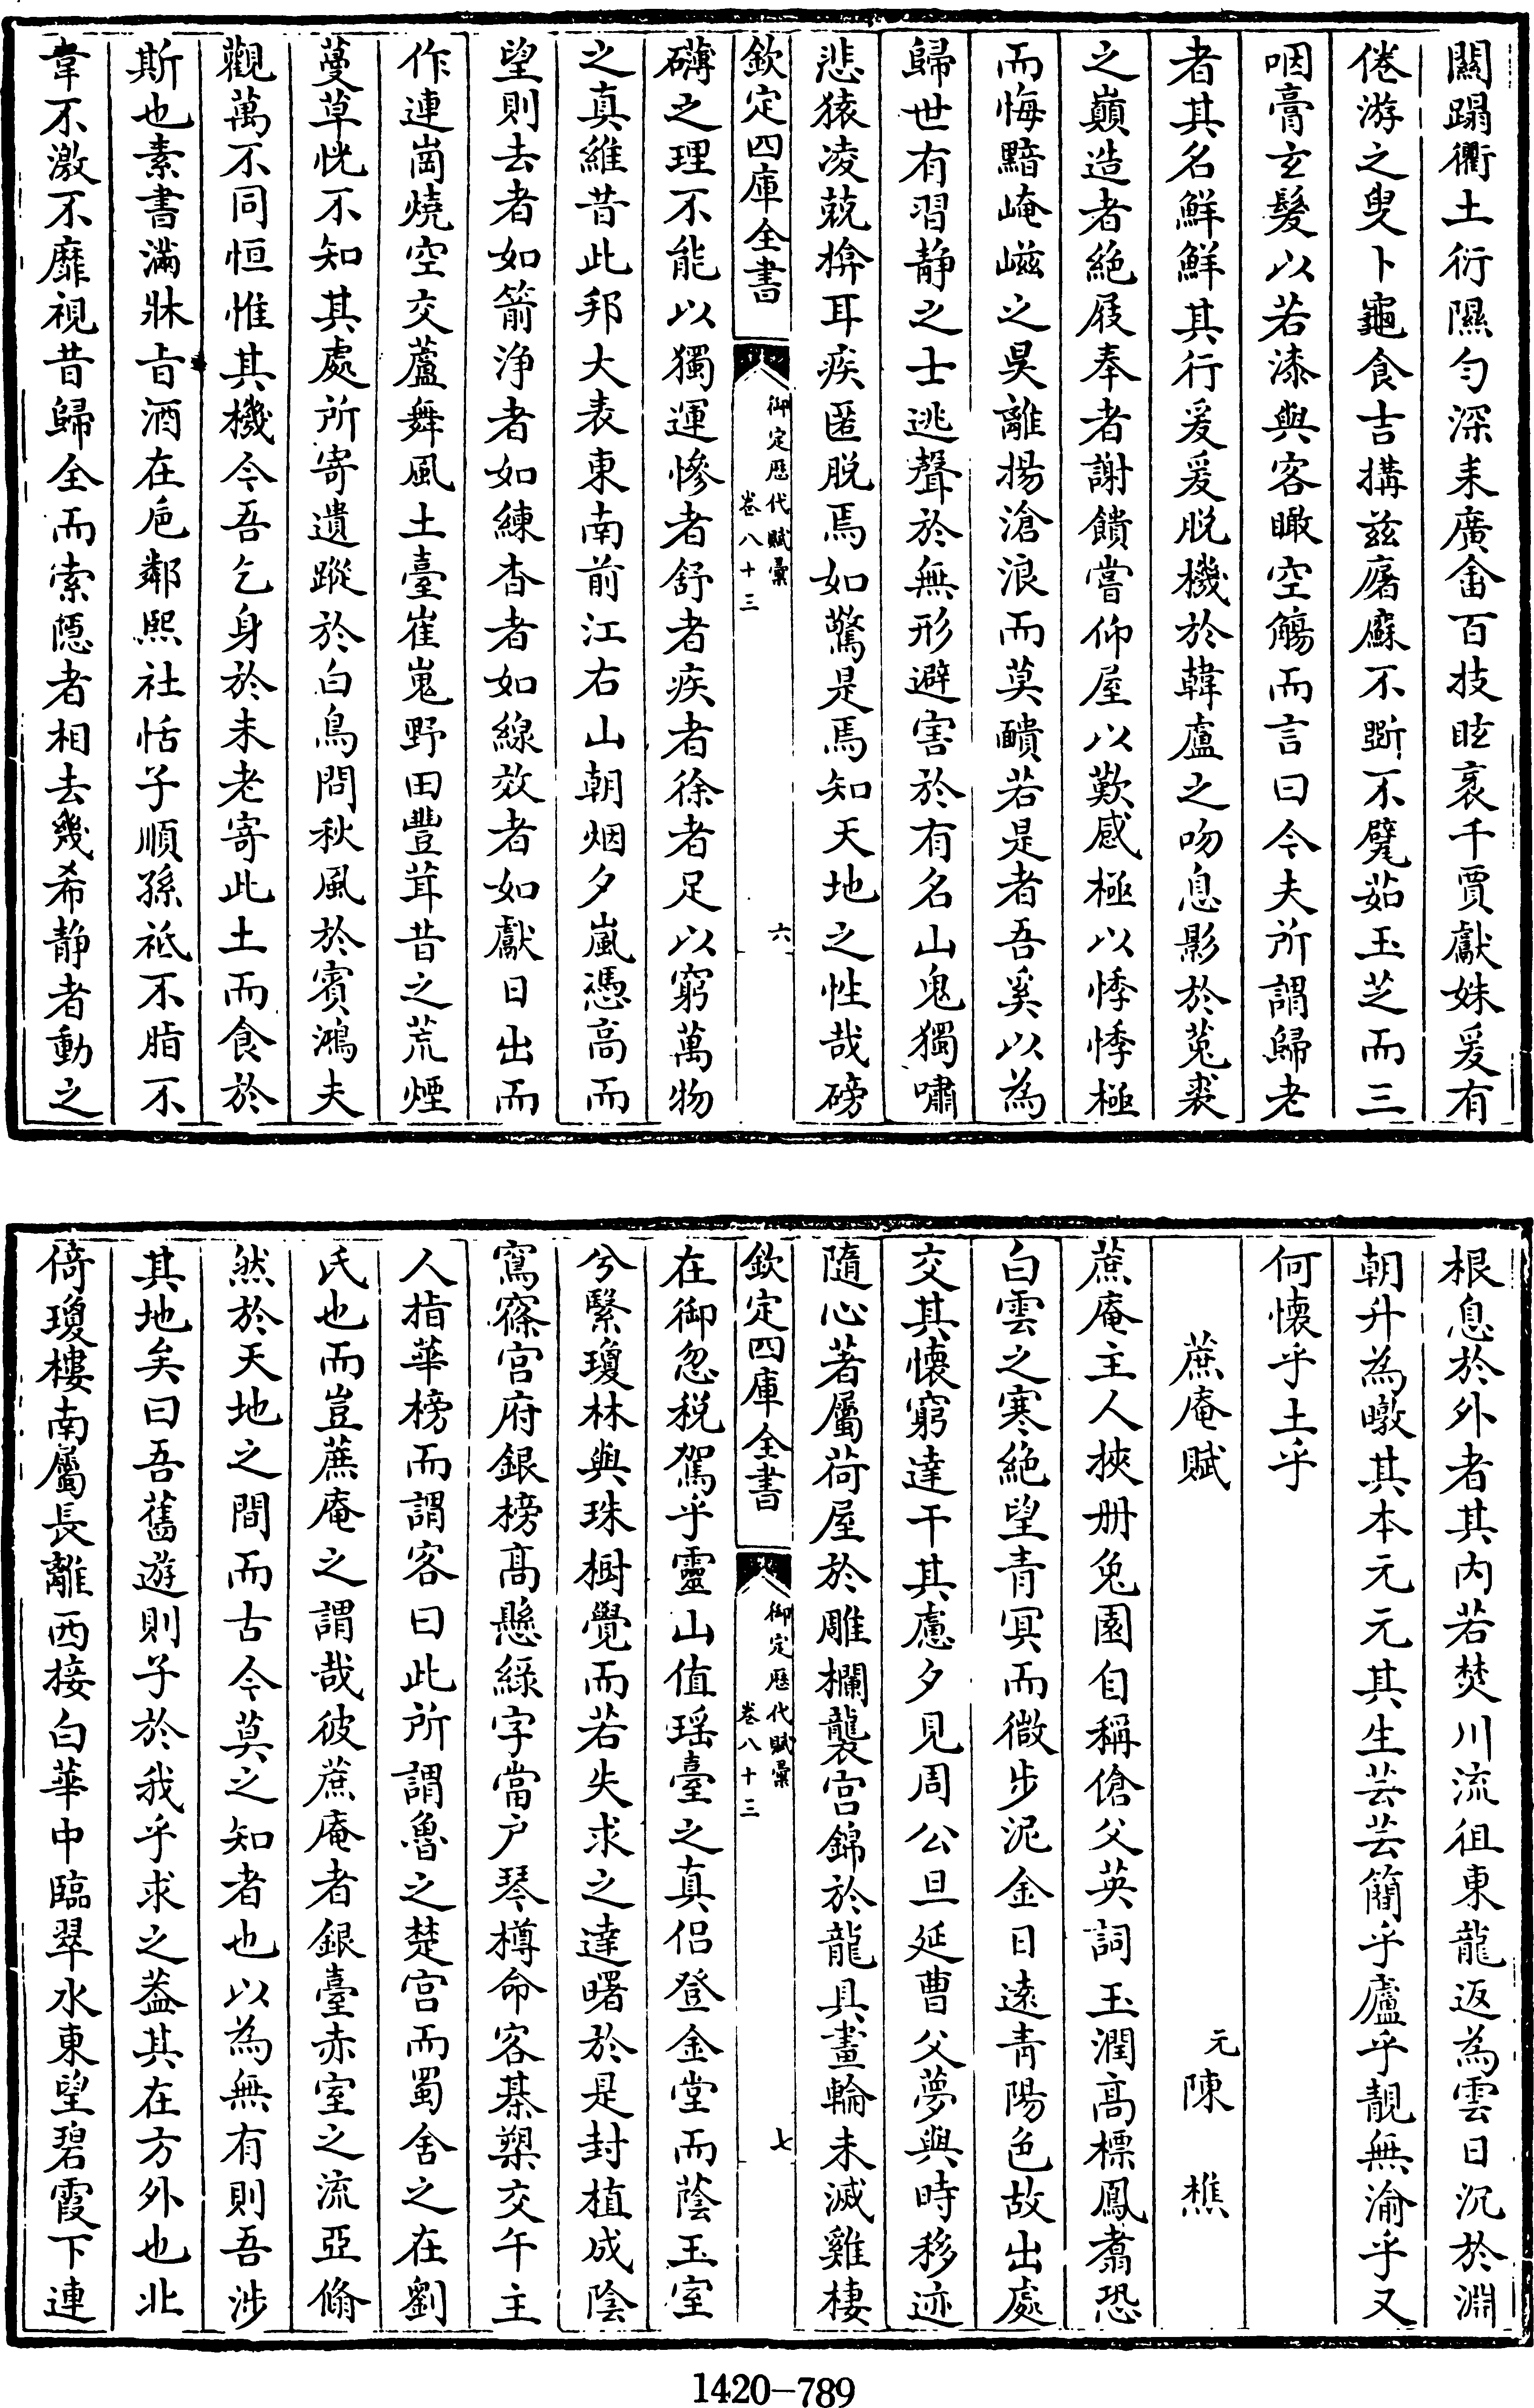 闤蹋衢土衍隰勻深耒廣畬百技眩裹千賈獻姝爰有
倦游之叟卜龜食吉搆兹屠蘇不斲不甓茹玉芝而三
咽膏玄髮以若漆與客瞰空觴而言曰今夫所謂歸老
者其名鮮鮮其行爰爰脱機於韓盧之吻息影於菟裘
之巔造者絶屐奉者謝饋嘗仰屋以歎感極以悸悸極
而悔黯崦嵫之㫤離揚滄浪而莫皾若是者吾奚以為
歸世有習静之士逃聲於無形避害於有名山鬼獨嘯
悲猿凌兢揜耳疾匿脱焉如驚是焉知天地之性哉磅
欽定四庫全書
御定歴代賦彚
卷八十三
六
礴之理不能以獨運慘者舒者疾者徐者足以窮萬物
之真維昔此邦大表東南前江右山朝烟夕嵐憑高而
望則去者如箭浄者如練杳者如線效者如獻日出而
作連崗燒空交蘆舞風土臺崔嵬野田豐茸昔之荒煙
蔓草恍不知其處所寄遺蹤於白鳥問秋風於賓鴻夫
觀萬不同恒惟其機今吾乞身於未老寄此土而食於
斯也素書滿牀旨酒在巵鄰熙社恬子順孫祗不脂不
韋不激不靡視昔歸全而索隠者相去幾希静者動之
根息於外者其内若焚川流徂東龍返為雲日沉於淵
朝升為暾其本元元其生芸芸簡乎廬乎靚無渝乎又
何懷乎土乎
蔗庵賦
元陳樵
蔗庵主人挾册兔園自稱傖父英詞玉潤高標鳳翥恐
白雲之寒絶望青冥而微步泥金日遠青陽色故出處
交其懷窮達干其慮夕見周公旦延曹父夢與時移迹
隨心著屬荷屋於雕欄襲宫錦於龍具畫輪未滅雞棲
欽定四庫全書
御定歴代賦彚
卷八十三
七
在御忽税駕乎靈山值瑶臺之真侣登金堂而蔭玉室
兮繄瓊林與珠樹覺而若失求之達曙於是封植成陰
窵窱宫府銀榜高懸綠字當户琴樽命客棊槊交午主
人指華榜而謂客曰此所謂魯之楚宫而蜀舍之在劉
氏也而豈蔗庵之謂哉彼蔗庵者銀臺赤室之流亞翛
然於天地之間而古今莫之知者也以為無有則吾涉
其地矣曰吾舊遊則子於我乎求之葢其在方外也北
倚瓊樓南屬長離西接白華中臨翠水東望碧霞下連
1420-789